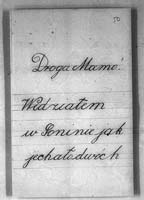 50
Droga Mamo!
Widziałem
w Koninie jak
jechało dwóch